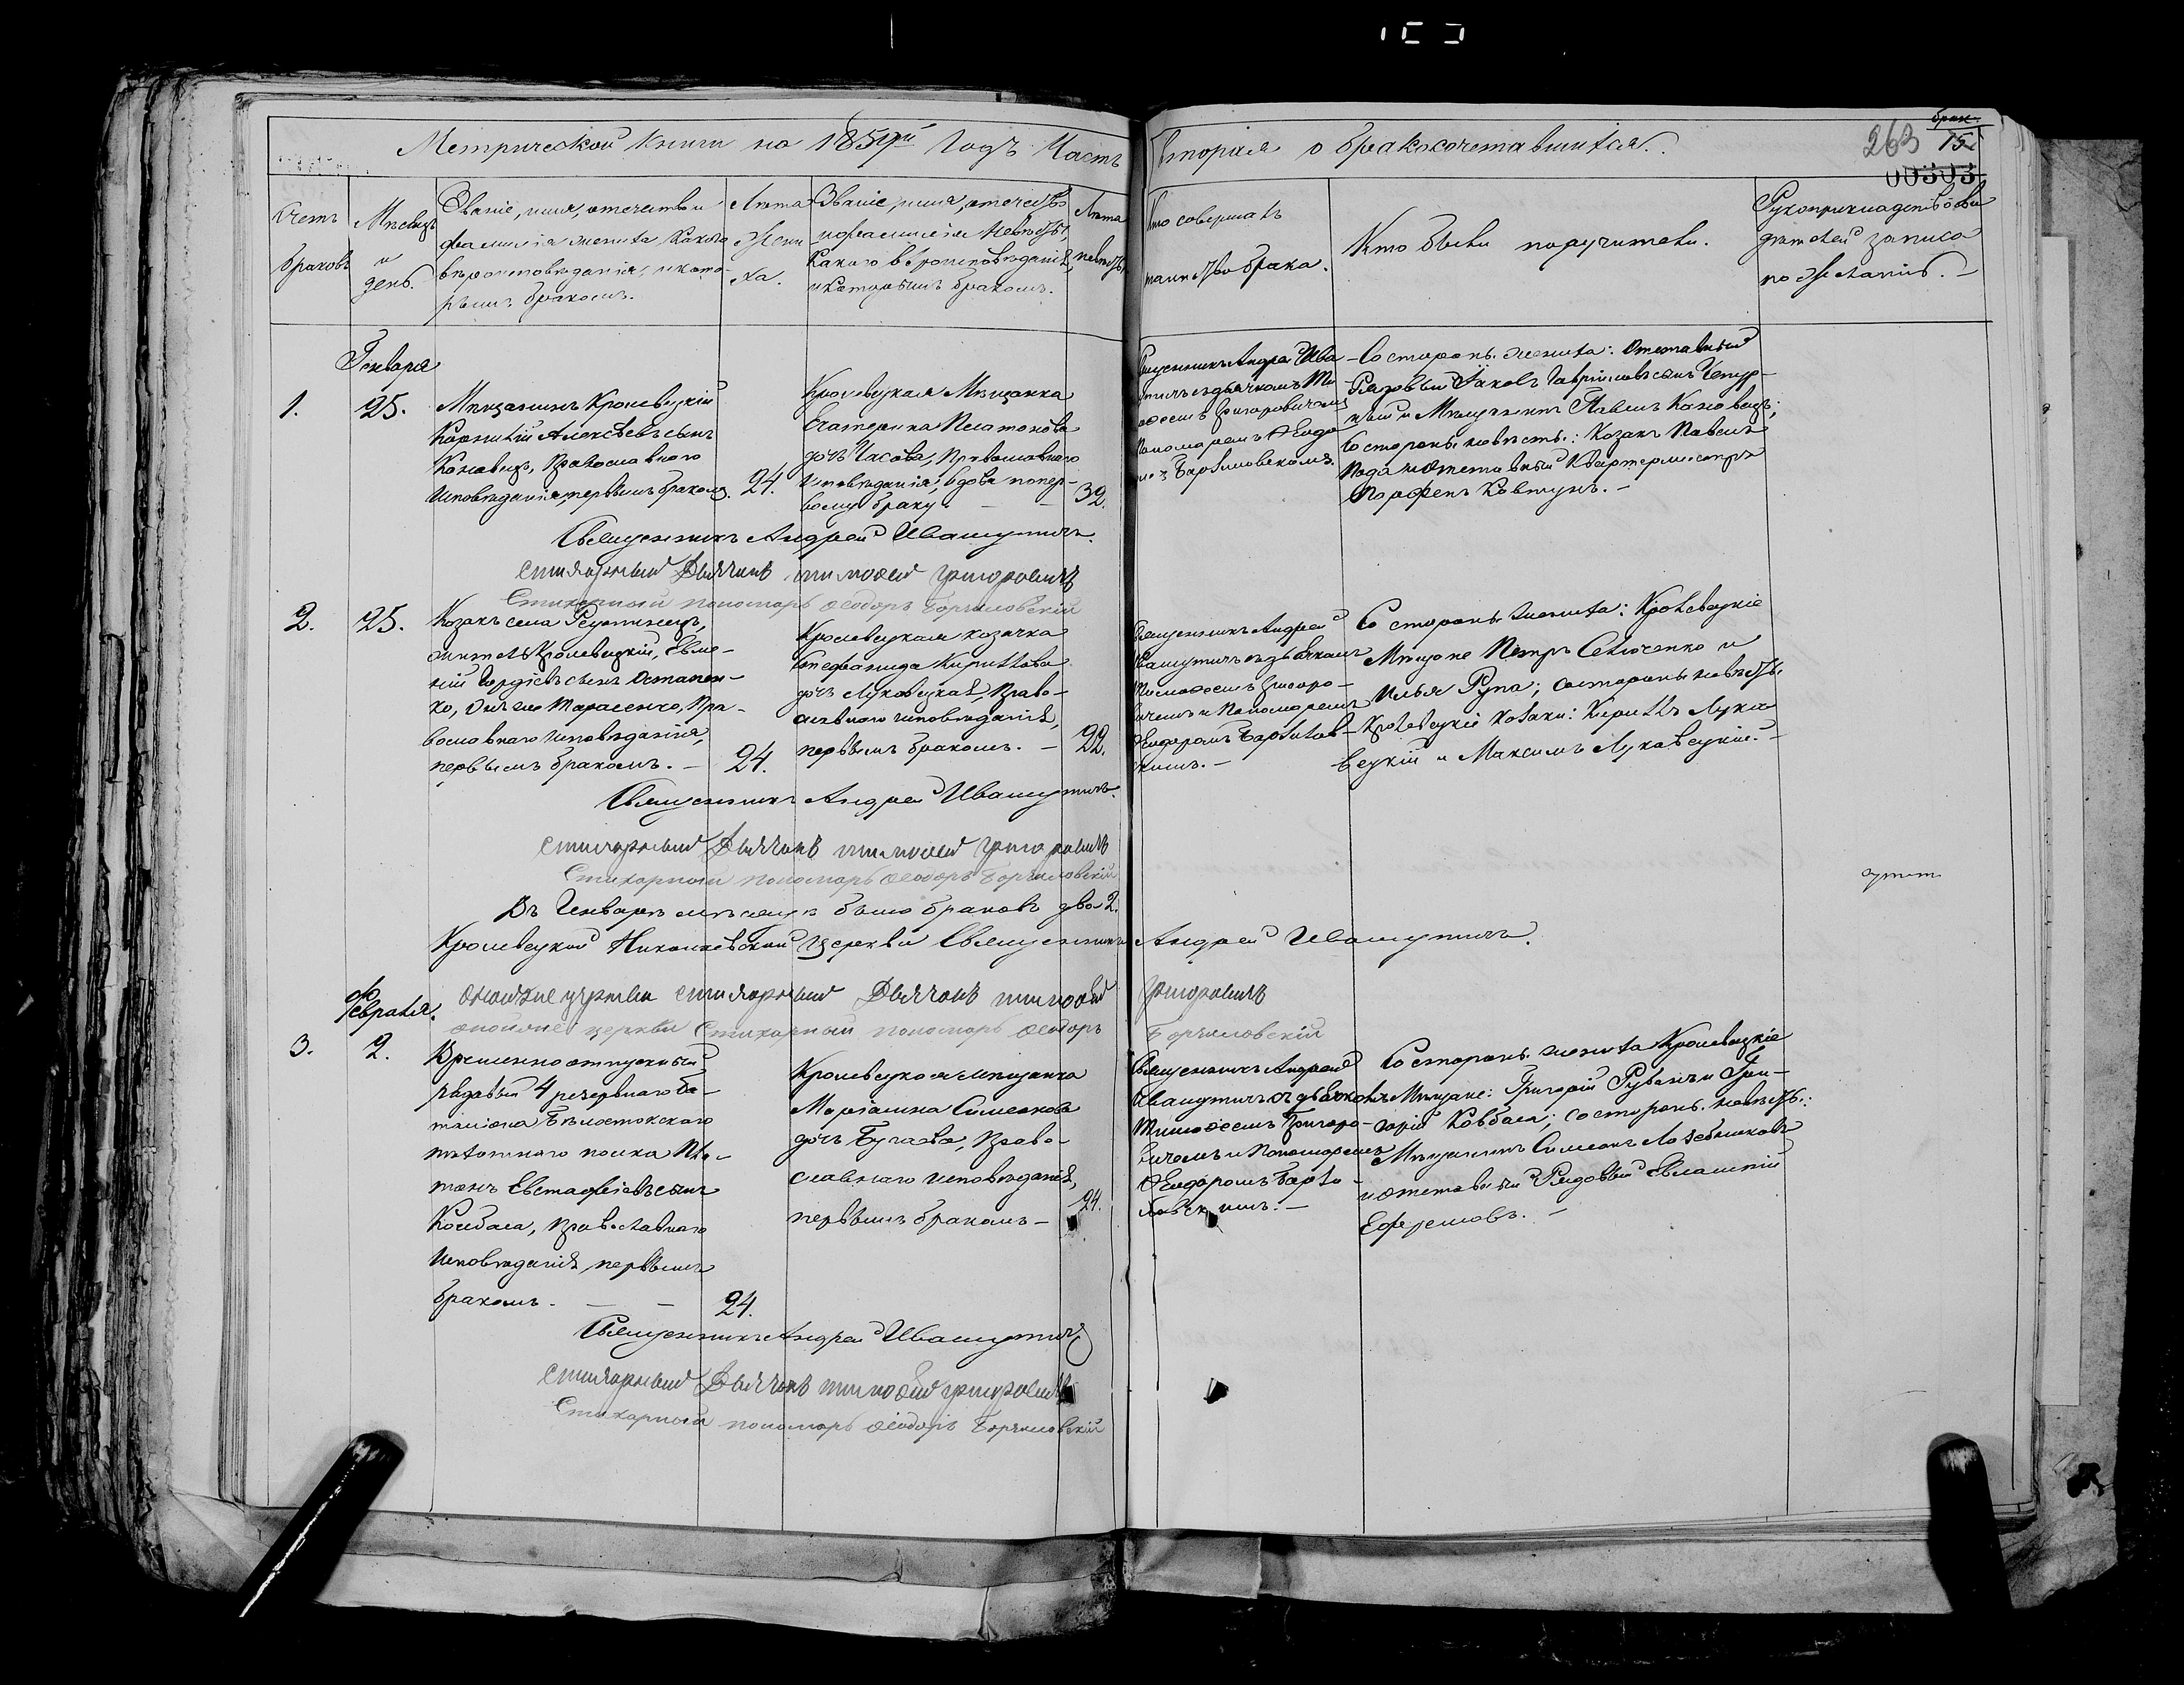 Метрической книги на 1859й годъ Часть вторая о бракосочетавшихся.
263
брак.
15
00303
Счетъ браковъ
Мѣсяцъ и день.
Званіе, имя, отечество и
фамилія жениха какого
вѣроисповѣданія, и кото-
рымъ бракомъ.
Лѣта
Жени
ха.
Званіе, имя, отечество
и фамилія невѣсты,
какого вѣроисповѣданія,
и которымъ бракомъ.
Лѣта
невѣсты
Кто совершалъ
таинство брака.
Кто были поручители.
Рукоприкладство сви
дѣтелей записа
по желанію. —
Генваря
1.
25.
Мѣщанинъ Кролевецкій
Корнилій Алексѣевъ сынъ
Коновецъ, Православнаго
Исповѣданія, первымъ бракомъ.
24.
Кролевецкая Мѣщанка
Екатерина Платонова
дочь Часова, Православнаго
исповѣданія, вдова по пер-
вому браку. —
32.
Священникъ Андрей Ива
съ дьячкомъ Ти
моѳеемъ Григоровичемъ
Пономаремъ Ѳеодо
Со стороны жениха: Отставный
Рядовый Іаковъ Гавріиловъ сынъ
и Мѣщанинъ Павелъ Коновецъ;
Со стороны невѣсты: Козакъ Павелъ
отставный Квартермистръ
Парфенъ Ковтунъ. —
Священникъ Андрей Ивашутичъ.
Стихарный Дьячокъ Тимоѳей Григоровичъ
Стихарный пономарь Ѳеодоръ
2.
25.
Козакъ села Реутинецъ,
житель Кролевецкій, Евме-
ній Гордіевъ сынъ Остапен-
ко, онъ же Тарасенко, Пра-
вославнаго исповѣданія,
первымъ бракомъ. —
24.
Кролевецкая козачка
Стефанида Кириллова
дочь Луковецкая, Право-
славнаго исповѣданія,
первымъ бракомъ. —
22.
Священникъ Андрей
Ивашутичъ съ дьячкомъ
Тимоѳеемъ Григоро-
вичемъ и Пономаремъ
Ѳеодоромъ
скимъ. —
Со стороны жениха: Кролевецкіе
Мѣщане Петръ Селюченко и
Илья Рупа; со стороны невѣсты
Кролевецкіе козаки: Кириллъ Луко
вецкій и Максимъ Луковецкій. —
Священникъ Андрей Ивашутичъ.
Стихарный Дьячокъ Тимоѳей Григоровичъ
Стихарный пономарь Ѳеодоръ
Въ Генварѣ мѣсяцѣ было браковъ два 2.
Кролевецкой Николаевской Церкви Священникъ Андрей Ивашутичъ.
Оной же церкви стихарный Дьячокъ Тимоѳей Григоровичъ
Оной же церкви Стихарный пономарь Ѳеодоръ
Февраля.
3.
2.
Временно отпускный
рядовый 4 резервнаго ба-
таліона Бѣлостокскаго
пѣхотнаго полка Пла-
тонъ Евстафіевъ сынъ
Колбаса, Православнаго
Исповѣданія, первымъ
бракомъ. — —
24.
Кролевецкая мѣщанка
Маріамна Симеонова
дочь Бугаева, Право-
славнаго исповѣданія,
первымъ бракомъ —
24.
Священникъ Андрей
Ивашутичъ съ дьячкомъ
Тимоѳеемъ Григоро-
вичемъ и Пономаремъ
Ѳеодоромъ
Со стороны жениха Кролевецкіе
Мѣщане: Григорій и Гри-
горій Ковбаса; со стороны невѣсты:
Мѣщанинъ Симеонъ
и отставный Рядовый Евлампій
Ефремовъ. —
Священникъ Андрей Ивашутичъ
Стихарный Дьячокъ Тимоѳей Григоровичъ
Стихарный пономарь Ѳеодоръ